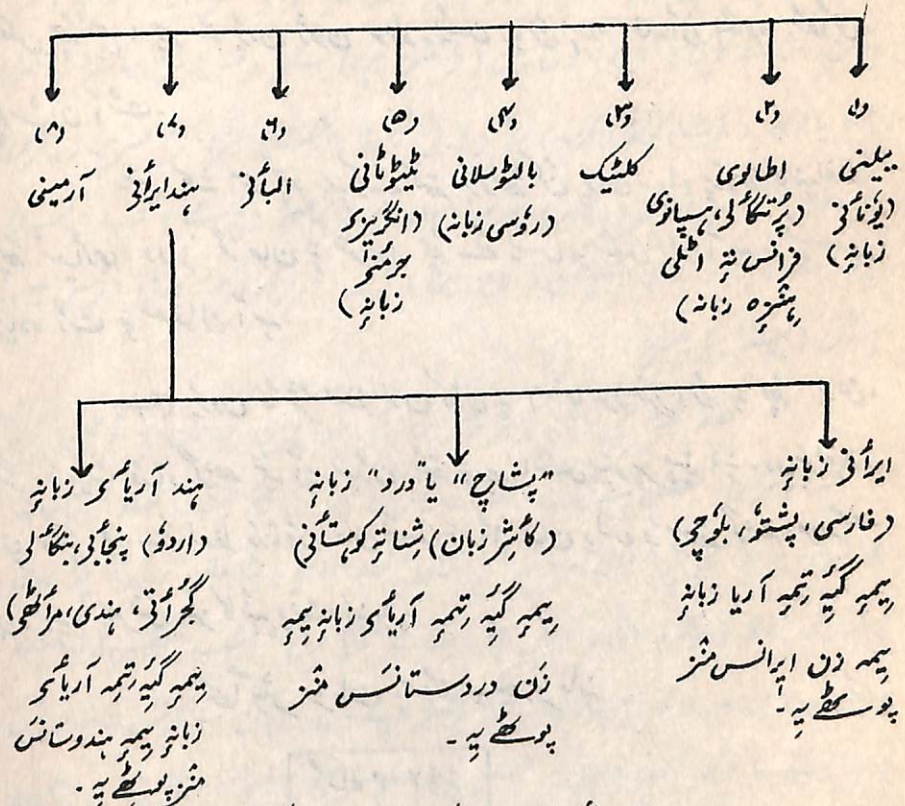 (۱)
ہیلینی
(یوٗنٲنؠ
زبانہٕ)
(۲)
اطالوی
(پُرتگٲلی، ہسپانوی
فرانس تہٕ اٹلی
ہٕنٛزٕ زبانہٕ)
(۳)
کلٹیک
(۴)
بالٹوسلانی
(روٗسی زبانہٕ)
(۵)
ٹیٹوٹانی
(انگریزی
جرمنی
زبانہٕ)
(۶)
البٲنؠ
(۷)
ہند ایرٲنؠ
(۸)
آرمینی
ایرٲنؠ زبانہٕ
(فارسی، پشتوٗ، بلوٗچی)
یِمہٕ گَیہِ تِمہٕ آریا زبانہٕ
یِمہٕ زن ایرانس منٛز
پھۄلیہِ۔
"پشاچ" یا "درد" زبانہٕ
(کٲشِر زبان) شِنا تہٕ کوہستٲنؠ
یِمہٕ گَیہِ تِمہٕ آریٲیی زبانہٕ یِمہٕ
زَن دردستانَس منٛز
پھۄلیہِ۔
ہند آریٲیی زبانہٕ
(اردوٗ) پنجٲبؠ، بنگٲلی
گُجرٲتؠ، ہندی، مرٲٹھی)
یِمہٕ گَیہِ تِمہٕ آریٲیی
زبانہٕ یِمہٕ ہندوستانَس
منٛز پھۄلیہِ۔